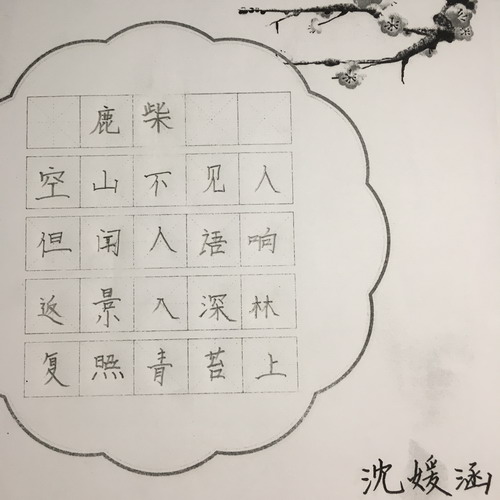 鹿柴
空山不见人
但闻人语响
返景入深林
复照青苔上
沈媛涵